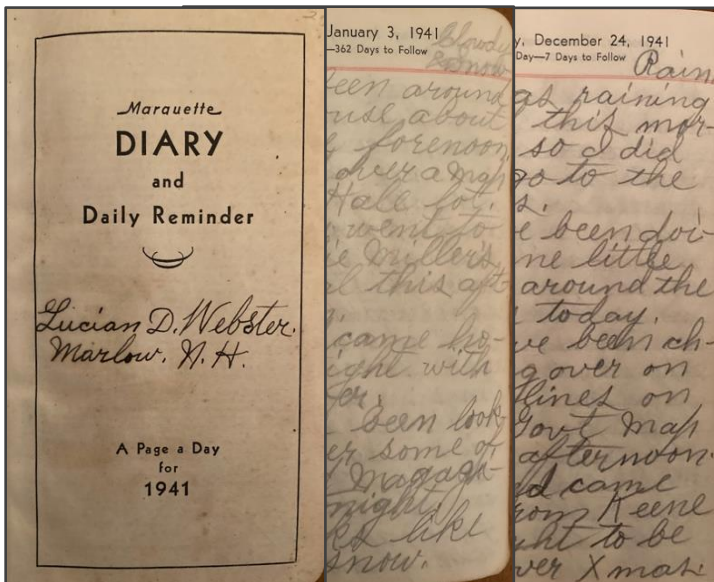 Marquette
DIARY
and
Daily Reminder
Lucian D. Webster.
Marlow. N. H.
A Page a Day
for
1941
January 3, 1941
—362 Days to Follow
Cloudy
& Snow
been around
ouse about
forenoon
over a map
Hall lot.
went to
ie Miller's
this aft
came ho-
ight with
er.
been look-
er some of
Magazi-
night.
ks like
snow.
y, December 24, 1941
Day—7 Days to Follow
Rain
as raining
this mor-
so I did
go to the
s.
e been doi-
ne little
around the
today.
ve been ch-
g over on
lines on
Govt Map
afternoon.
d came
rom Keene
ht to be
ver Xmas.